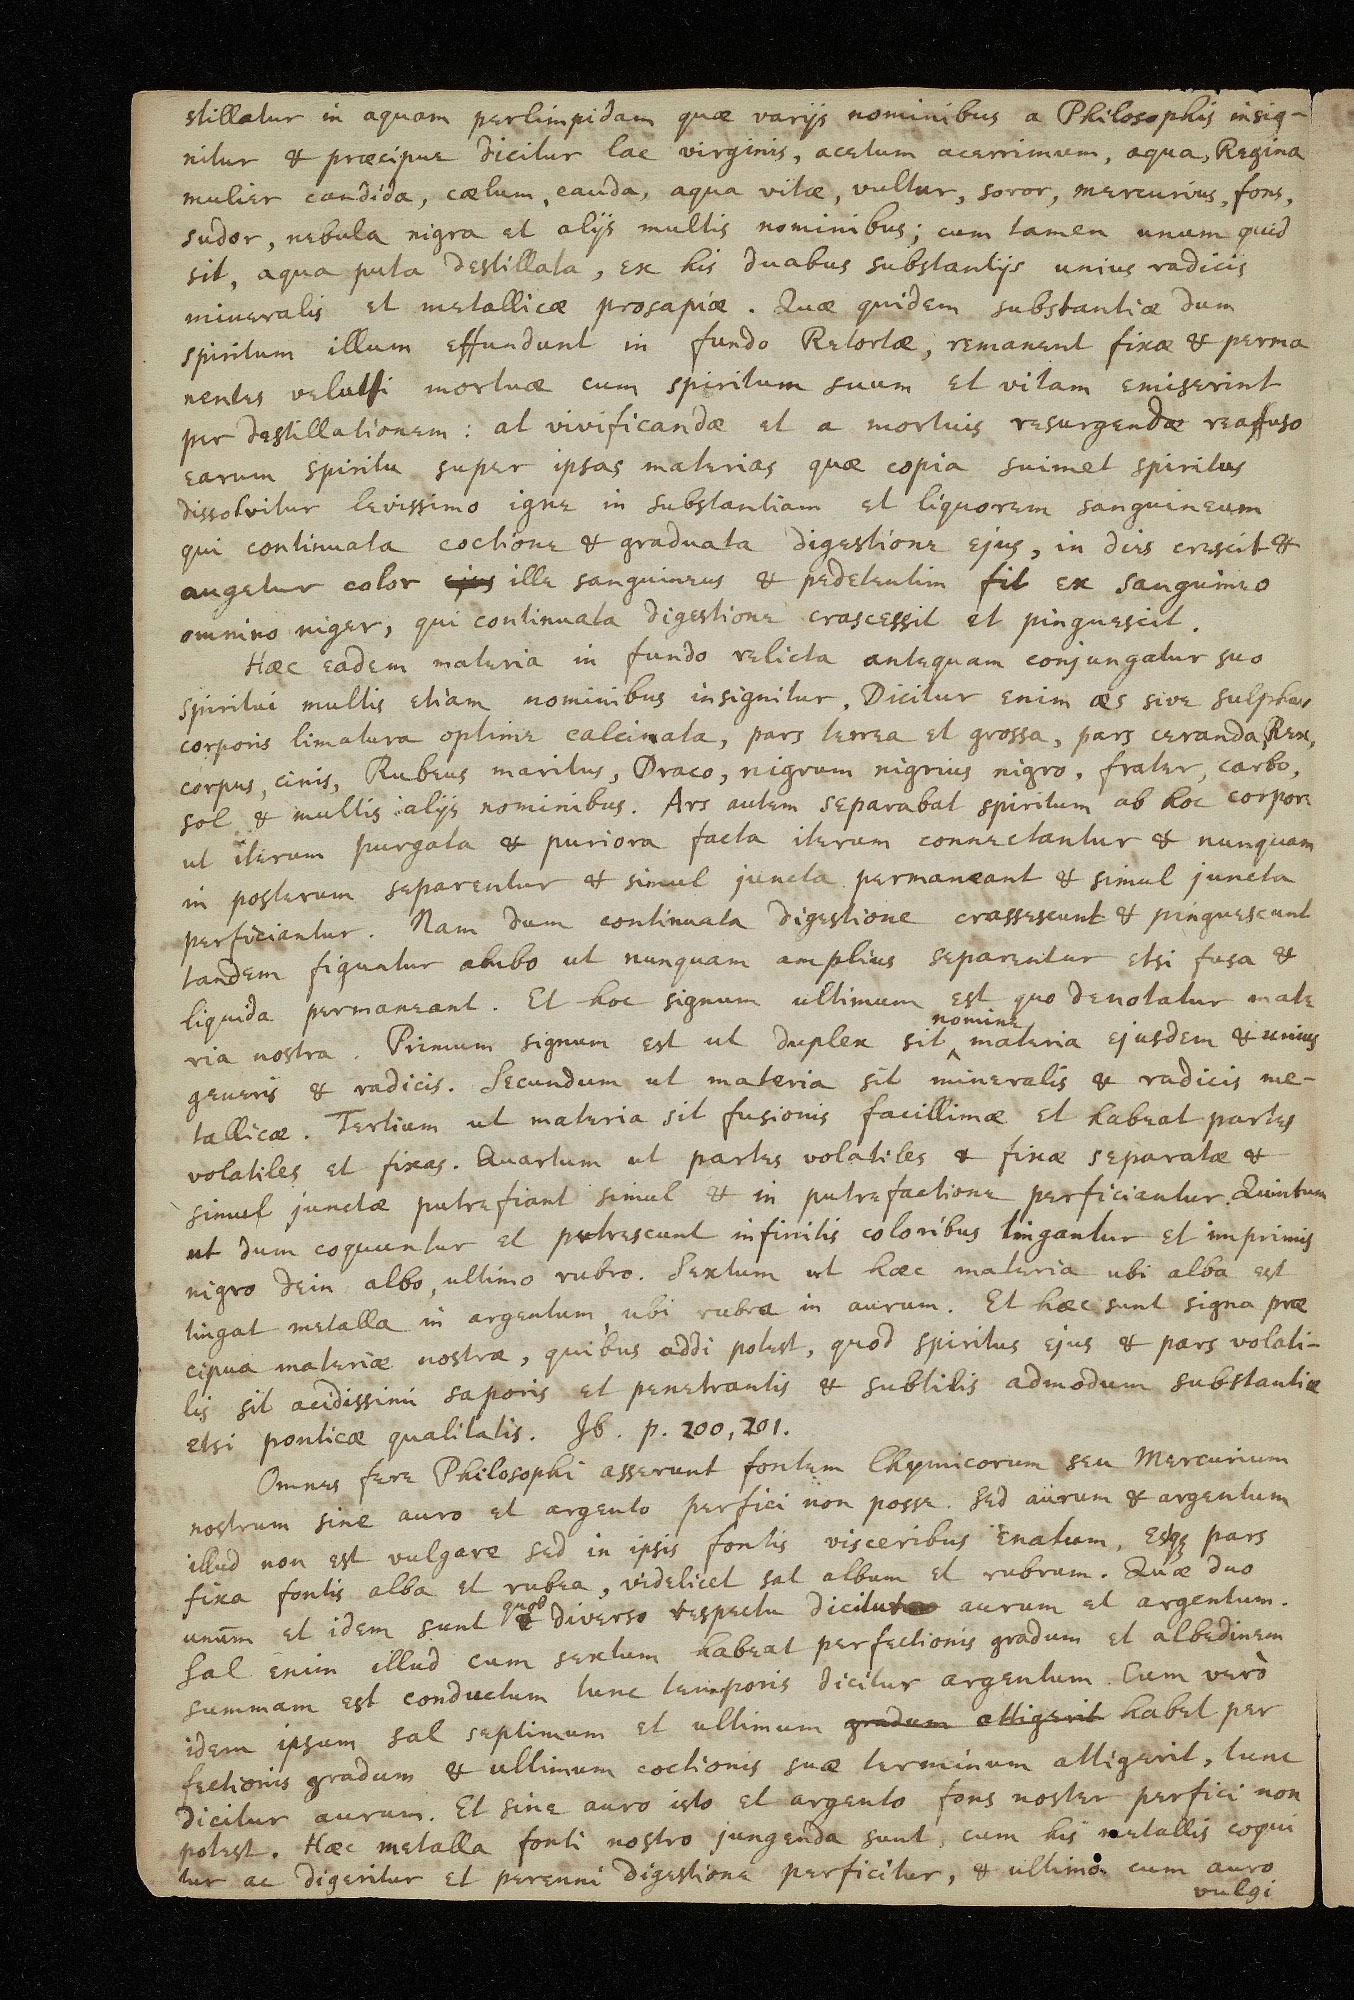 stillatur in aquam perlimpidam quæ varijs nominibus a Philosophis insig-
nitur & præcipue dicitur lac virginis, acetum acerrimum, aqua, Regina
mulier candida, cælum, cauda, aqua vitæ, vultur, soror, mercurius, fons,
sudor, nebula nigra et alijs multis nominibus; cum tamen unum quid
sit, aqua puta destillata, ex his duabus substantijs unius radicis
mineralis et metallicæ prosapiæ. Quæ quidem substantiæ dum
spiritum illum effundunt in fundo Retortæ, remanent fixæ & perma
nentes veluti mortuæ cum spiritum suum et vitam emiserint
per destillationem: at vivificandæ et a mortuis resurgendæ reaffuso
earum spiritu super ipsas materias quæ copia suimet spiritus
dissolvitur levissimo igne in substantiam et liquorem sanguineum
qui continuata coctione & graduata digestione ejus, in dies crescit &
augetur color ejus ille sanguineus & pedetentim fit ex sanguineo
omnino niger, qui continuata digestione crascessit et pinguescit.
Hæc eadem materia in fundo relicta antequam conjungatur suo
spiritui multis etiam nominibus insignitur. Dicitur enim æs sive sulphur
corporis limatura optime calcinata, pars terrea et grossa, pars ceranda, Rex,
corpus, cinis, Rubeus maritus, Draco, nigrum nigrius nigro, frater, carbo,
sol & multis alijs nominibus. Ars autem separabat spiritum ab hoc corpore
ut iterum purgata & puriora facta iterum connectantur & nunquam
in posterum separentur & simul juncta permaneant & simul juncta
perficiantur. Nam dum continuata digestione crassescunt & pinguescunt
tandem figuntur ambo ut nunquam amplius separentur etsi fusa &
liquida permaneant. Et hoc signum ultimum est quo denotatur mate
ria nostra. Primum signum est ut duplex sit ^nomine materia ejusdem & unius
generis & radicis. Secundum ut materia sit mineralis & radicis me-
tallicæ. Tertium ut materia sit fusionis facillimæ et habeat partes
volatiles et fixas. Quartum ut partes volatiles & fixæ separatæ &
simul junctæ putrefiant simul & in putrefactione perficiantur. Quintum
ut dum coquuntur et putrescunt infinitis coloribus tingantur et imprimis
nigro dein albo, ultimo rubro. Sextum ut hæc materia ubi alba est
tingat metalla in argentum, ubi rubra in aurum. Et hæc sunt signa præ
cipua materiæ nostræ, quibus addi potest, quod spiritus ejus & pars volati-
lis sit acidissimi saporis et penetrantis & subtilis admodum substantiæ
etsi ponticæ qualitatis. Ib. p. 200, 201.
Omnes fere Philosophi asserunt fontem Chymicorum seu Mercurium
nostrum sine auro et argento perfici non posse. Sed aurum & argentum
illud non est vulgare sed in ipsis fontis visceribus enatum, estqꝫ pars
fixa fontis alba et rubea, videlicet sal album et rubrum. Quæ duo
unum et idem sunt quod diverso respectu dicitur aurum et argentum.
Sal enim illud cum sextum habeat perfectionis gradum et albedinem
summam est conductum tunc temporis dicitur argentum. Cum verò
idem ipsum sal septimum et ultimum gradum attigerit habet per
fectionis gradum & ultimum coctionis suæ terminum attigerit, tunc
dicitur aurum. Et sine auro isto et argento fons noster perfici non
potest. Hæc metalla fonti nostro jungenda sunt, cum his metallis coqui
tur ac digeritur et perenni digestione perficitur, & ultimo cum auro
vulgi